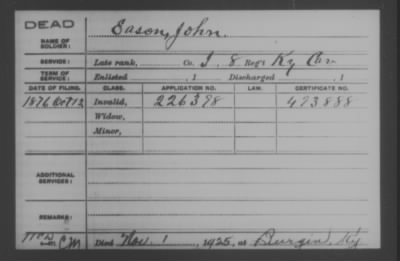 DEAD
NAME OF SOLDIER: Eason, John.
SERVICE: Late rank, Co. I, 8 Reg't Ky Cav
TERM OF SERVICE: Enlisted , 1 Discharged , 1
DATE OF FILING. CLASS. APPLICATION NO. LAW. CERTIFICATE NO.
1876 Oct 12 Invalid, 226398 493888
Widow,
Minor,
ADDITIONAL SERVICES:
REMARKS:
C M Died Nov. 1, 1925, at Burgin, Ky